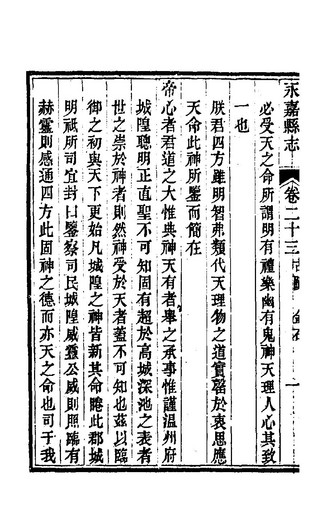 永嘉縣志 卷二十三 古蹟 金石 一
必受天之命所謂明有禮樂幽有鬼神天理人心其致
一也
朕君四方雖明智弗類代天理物之道實罄於衷思應
天命此神所鑒而簡在
帝心者君道之大惟典神天有者舉之承事惟謹溫州府
城隍聰明正直聖不可知固有超於高城深池之表者
世之崇於神者則然神受於天者蓋不可知也茲以臨
御之初與天下更始凡城隍之神皆新其命睠此郡城
明祇所司宜封曰鑒察司民城隍威靈公威則照臨有
赫靈則感通四方此固神之德而亦天之命也司于我